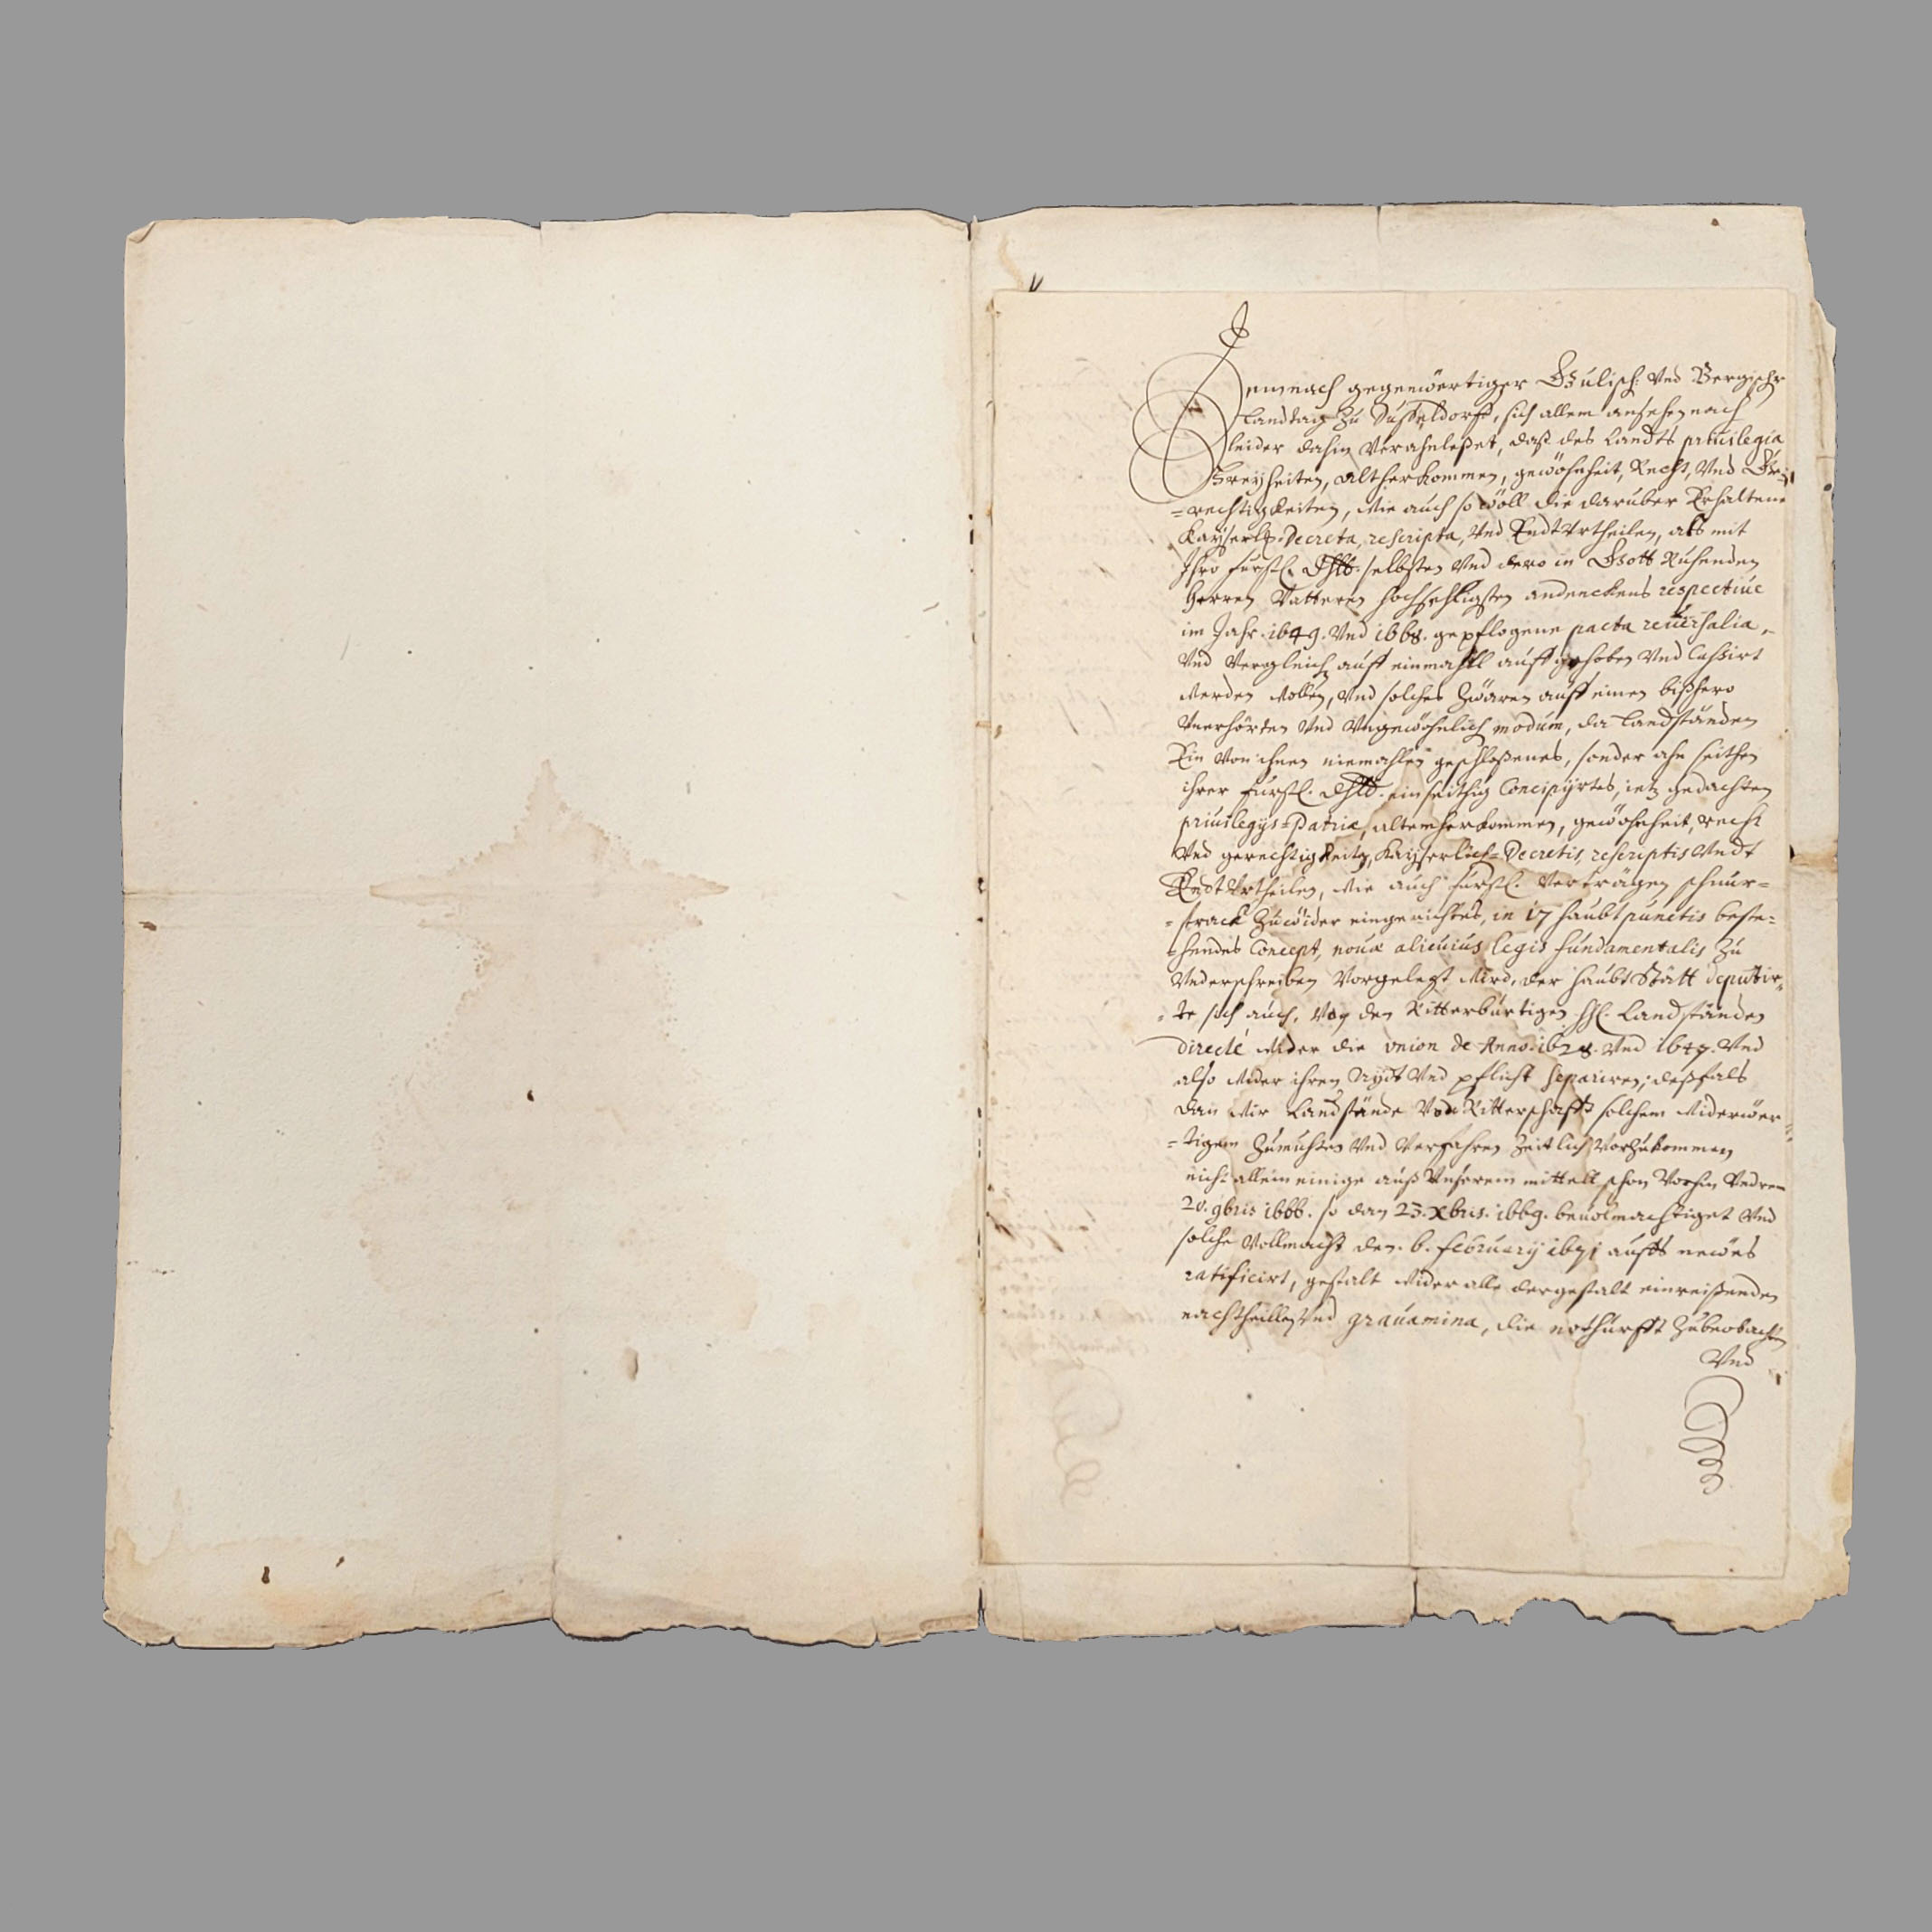 Demnach gegenwertiger Gülisch: Vnd Bergischer
Landtag zu Düsseldorff, sich allem ansehen nach
leider dahin Veranleßet, daß des Landts priuilegia
Freyheiten, altherkommen, gewohnheit, Recht, Vnd Ge-
=rechtigkeiten, wie auch so woll die darüber Erhaltene
Kayserl. Decreta, rescripta, Vnd EndtVrtheilen, als mit
Ihro fürstl. Dhlt. selbsten Vnd dero in Gott Ruhenden
Herren Vatteren hochsehligsten andenckens respectiue
im Jahr 1649. Vnd 1668. gepflogene pacta reuersalia,
Vnd Vergleich auff einmahll auffgehoben Vnd Cassirt
werden wollen, Vnd solches zwaren auff einen bißhero
Vnerhörten Vnd Vngewöhnlich modum, da Landständen
Ein Von ihnen niemahlen geschloßenes, sonder ahn seithen
ihrer fürstl. Dhlt. einseithig Concipyrtes, ietz gedachten
priuilegys Patriæ, altemherkommen, gewohnheit, recht
Vnd gerechtigkeit, Kayserlich= Decretis, rescriptis Vndt
EndtVrtheilen, wie auch fürstl. Verträgen schnur=
=strack zuwider eingerichtes, in 17 haubtpunctis beste=
=hendes Concept, nouæ alicuius legis fundamentalis zu
Vnderschreiben Vorgelegt wird, der haubt Stätt deputir=
=te sich auch, Von den Ritterbürtigen HH. Landständen
directè wider die vnion de Anno 1628. Vnd 1647. Vnd
also wider ihren Aydt Vnd pflicht separiren; deßfals
dan wir Landstände Von Ritterschafft solchem widerwer=
=tigem zumuhten Vnd Verfahren zeitlich Vorzukommen
nicht allein einige auß Vnserem mittell schon Vorhin
20. 9bris 1666. so dan 23. Xbris. 1669. beuolmachtiget Vnd
solche Vollmacht den. 6. february 1671 auffs newes
ratificirt, gestalt wider alle dergestalt einreißenden
nachtheillen Vnd grauamina, die nothurfft zubeobachten
Vnd